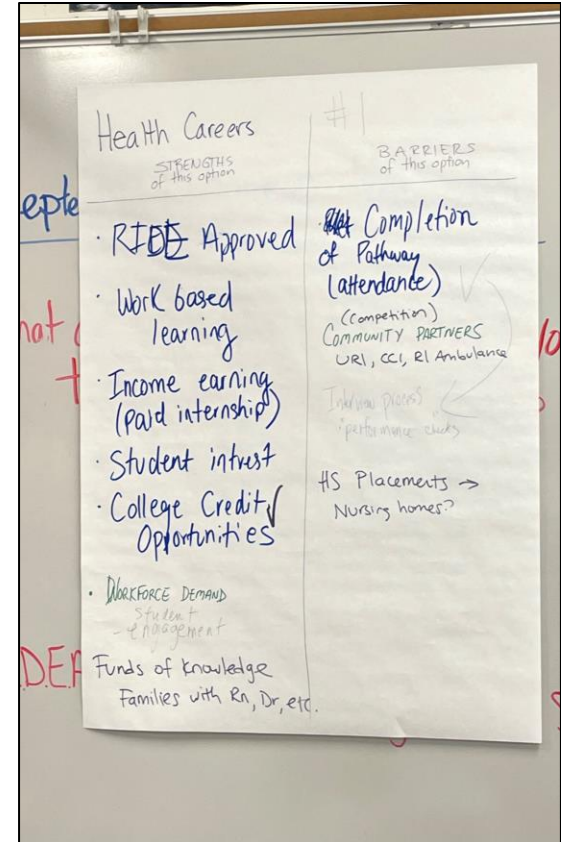 Health Careers
STRENGTHS
of this option
· RIDE Approved
· Work based
learning
· Income earning
(paid internship)
· Student intrest
· College Credit
Opportunities
· WORKFORCE DEMAND
Student
- engagement
Funds of Knowledge
Families with Rn, Dr, etc.
#1
BARRIERS
of this option
· Completion
of Pathway
(attendance)
(competition)
COMMUNITY PARTNERS
URI, CCI, RI Ambulance
Interview process
HS Placements →
Nursing homes?
epte
hat
D.E.